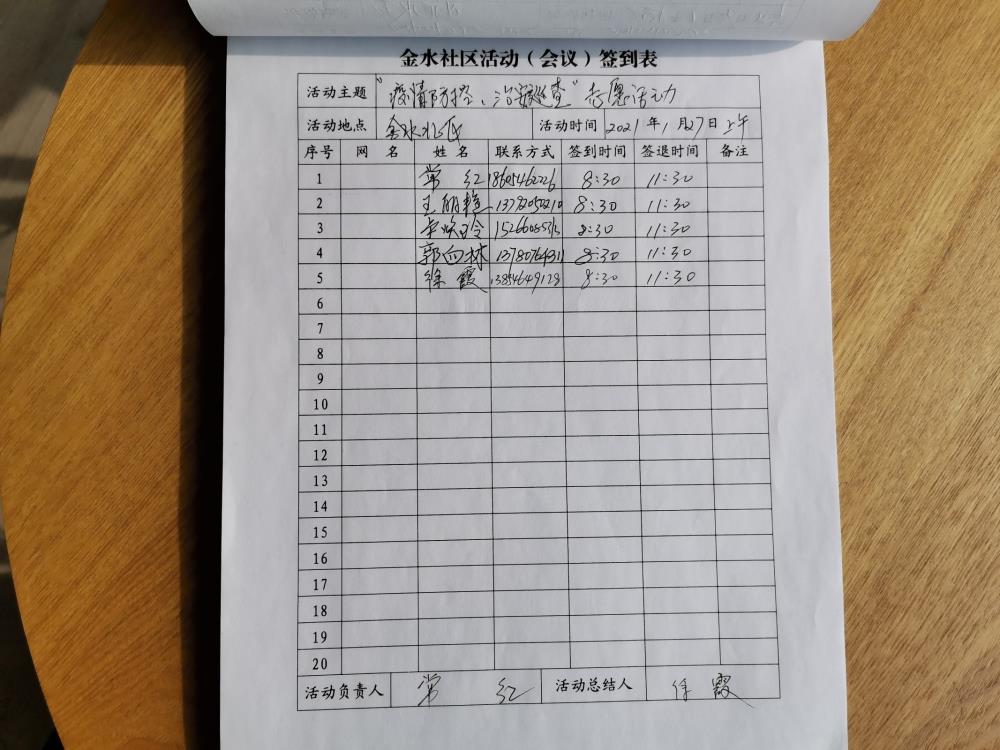 金水社区活动（会议）签到表
活动主题 "疫情防控、治安巡查"志愿活动
活动地点 金水北区 活动时间 2021年1月27日上午
序号 网名 姓名 联系方式 签到时间 签退时间 备注
1 常红 18605462226 8:30 11:30
2 王丽艳 8:30 11:30
3 8:30 11:30
4 郭向林 8:30 11:30
5 徐霞 13854649128 8:30 11:30
6
7
8
9
10
11
12
13
14
15
16
17
18
19
20
活动负责人 常红 活动总结人 徐霞